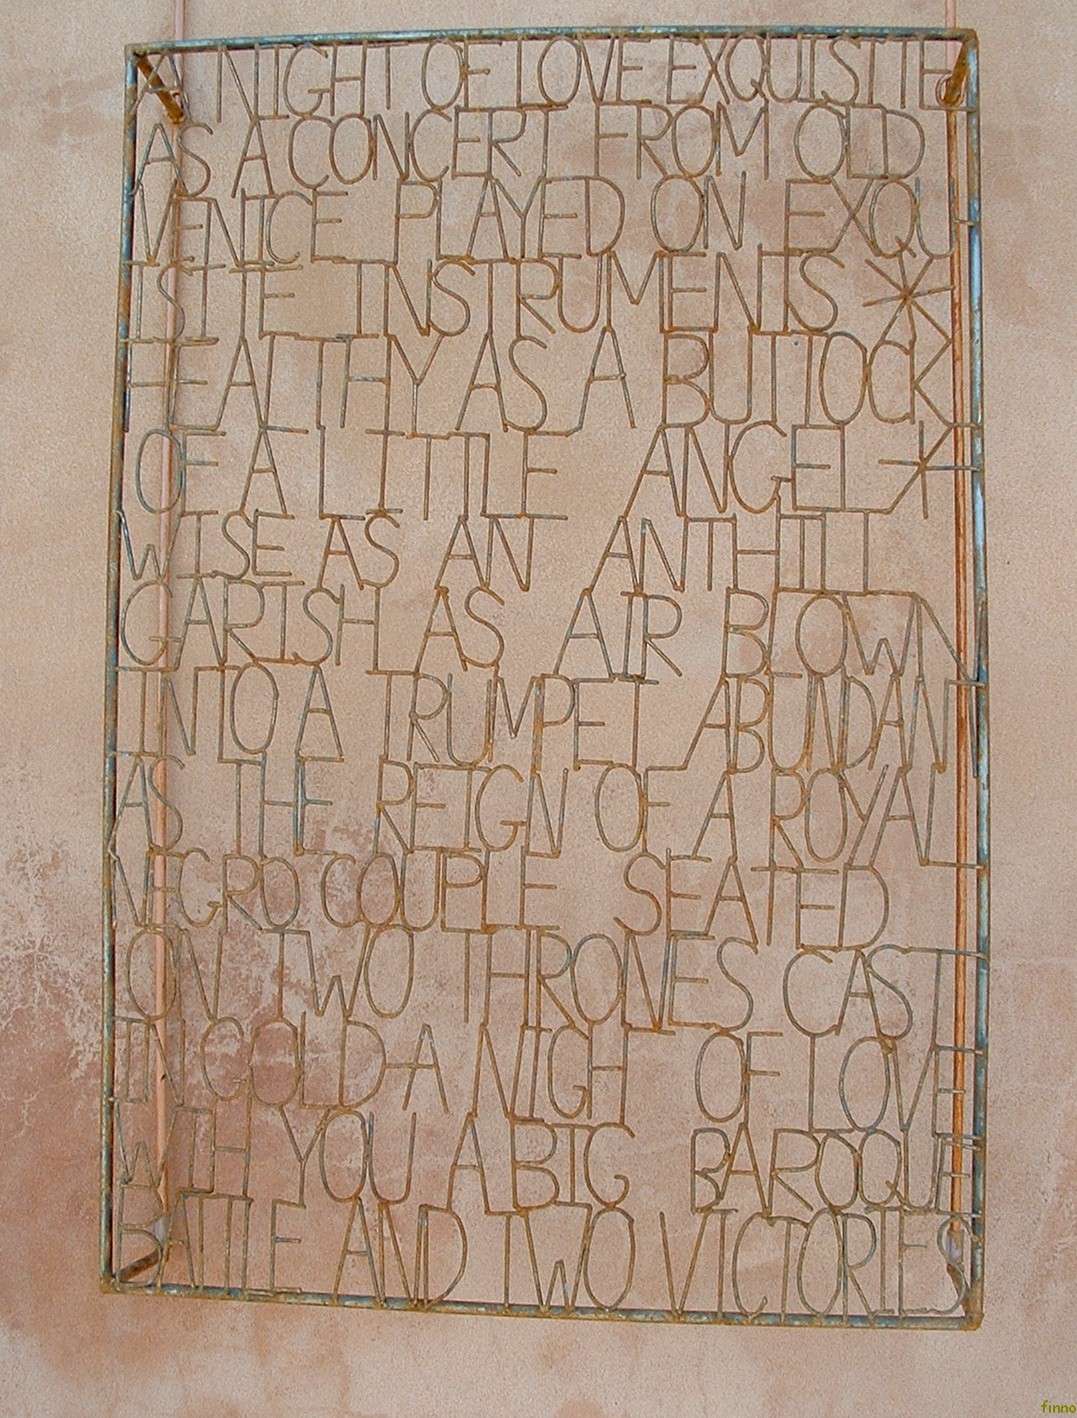 A NIGHT OF LOVE EXQUISITE
AS A CONCERT FROM OLD
VENICE PLAYED ON EXQU
ISITE INSTRUMENTS *
HEALTHY AS A BUTTOCK
OF A LITTLE ANGEL *
WISE AS AN ANTHILL
GARISH AS AIR BLOWN
INTO A TRUMPET ABUNDANT
AS THE REIGN OF A ROYAL
NEGRO COUPLE SEATED
ON TWO THRONES CAST
IN GOLD A NIGHT OF LOVE
WITH YOU A BIG BAROQUE
BATTLE AND TWO VICTORIES
finno